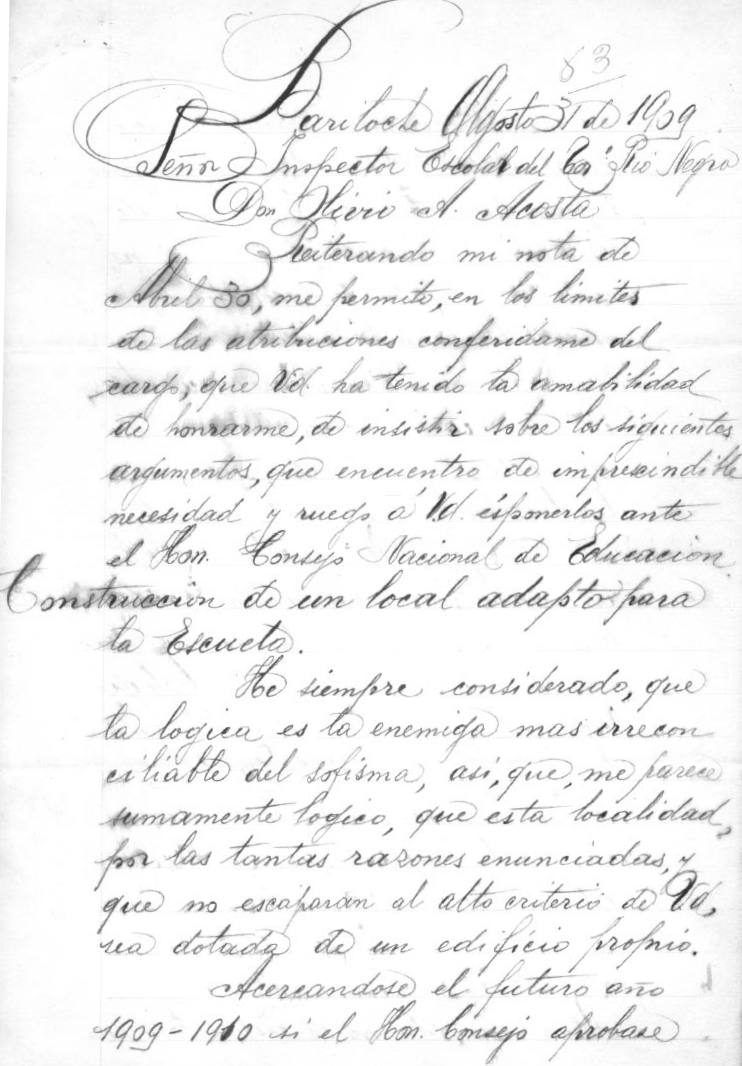 63
Bariloche Agosto 31 de 1909
Señor Inspector Escolar del Ter. Rio Negro
Don Livio A. Acosta
Reiterando mi nota de
Abril 30, me permito, en los limites
de las atribuciones conferidame del
cargo, que Vd. ha tenido la amabilidad
de honrarme, de insistir sobre los siguientes
argumentos, que encuentro de imprescindible
necesidad y ruego á Vd. ésponerlos ante
el Hon. Consejo Nacional de Educacion.
Construccion de un local adapto para
la Escuela.
He siempre considerado, que
la logica es la enemiga mas irrecon
ciliable del sofisma, asi, que, me parece
sumamente logico, que esta localidad,
por las tantas razones enunciadas, y
que no escaparan al alto criterio de Vd,
sea dotada de un edificio propio.
Acercandose el futuro año
1909-1910 si el Hon. Consejo aprobase